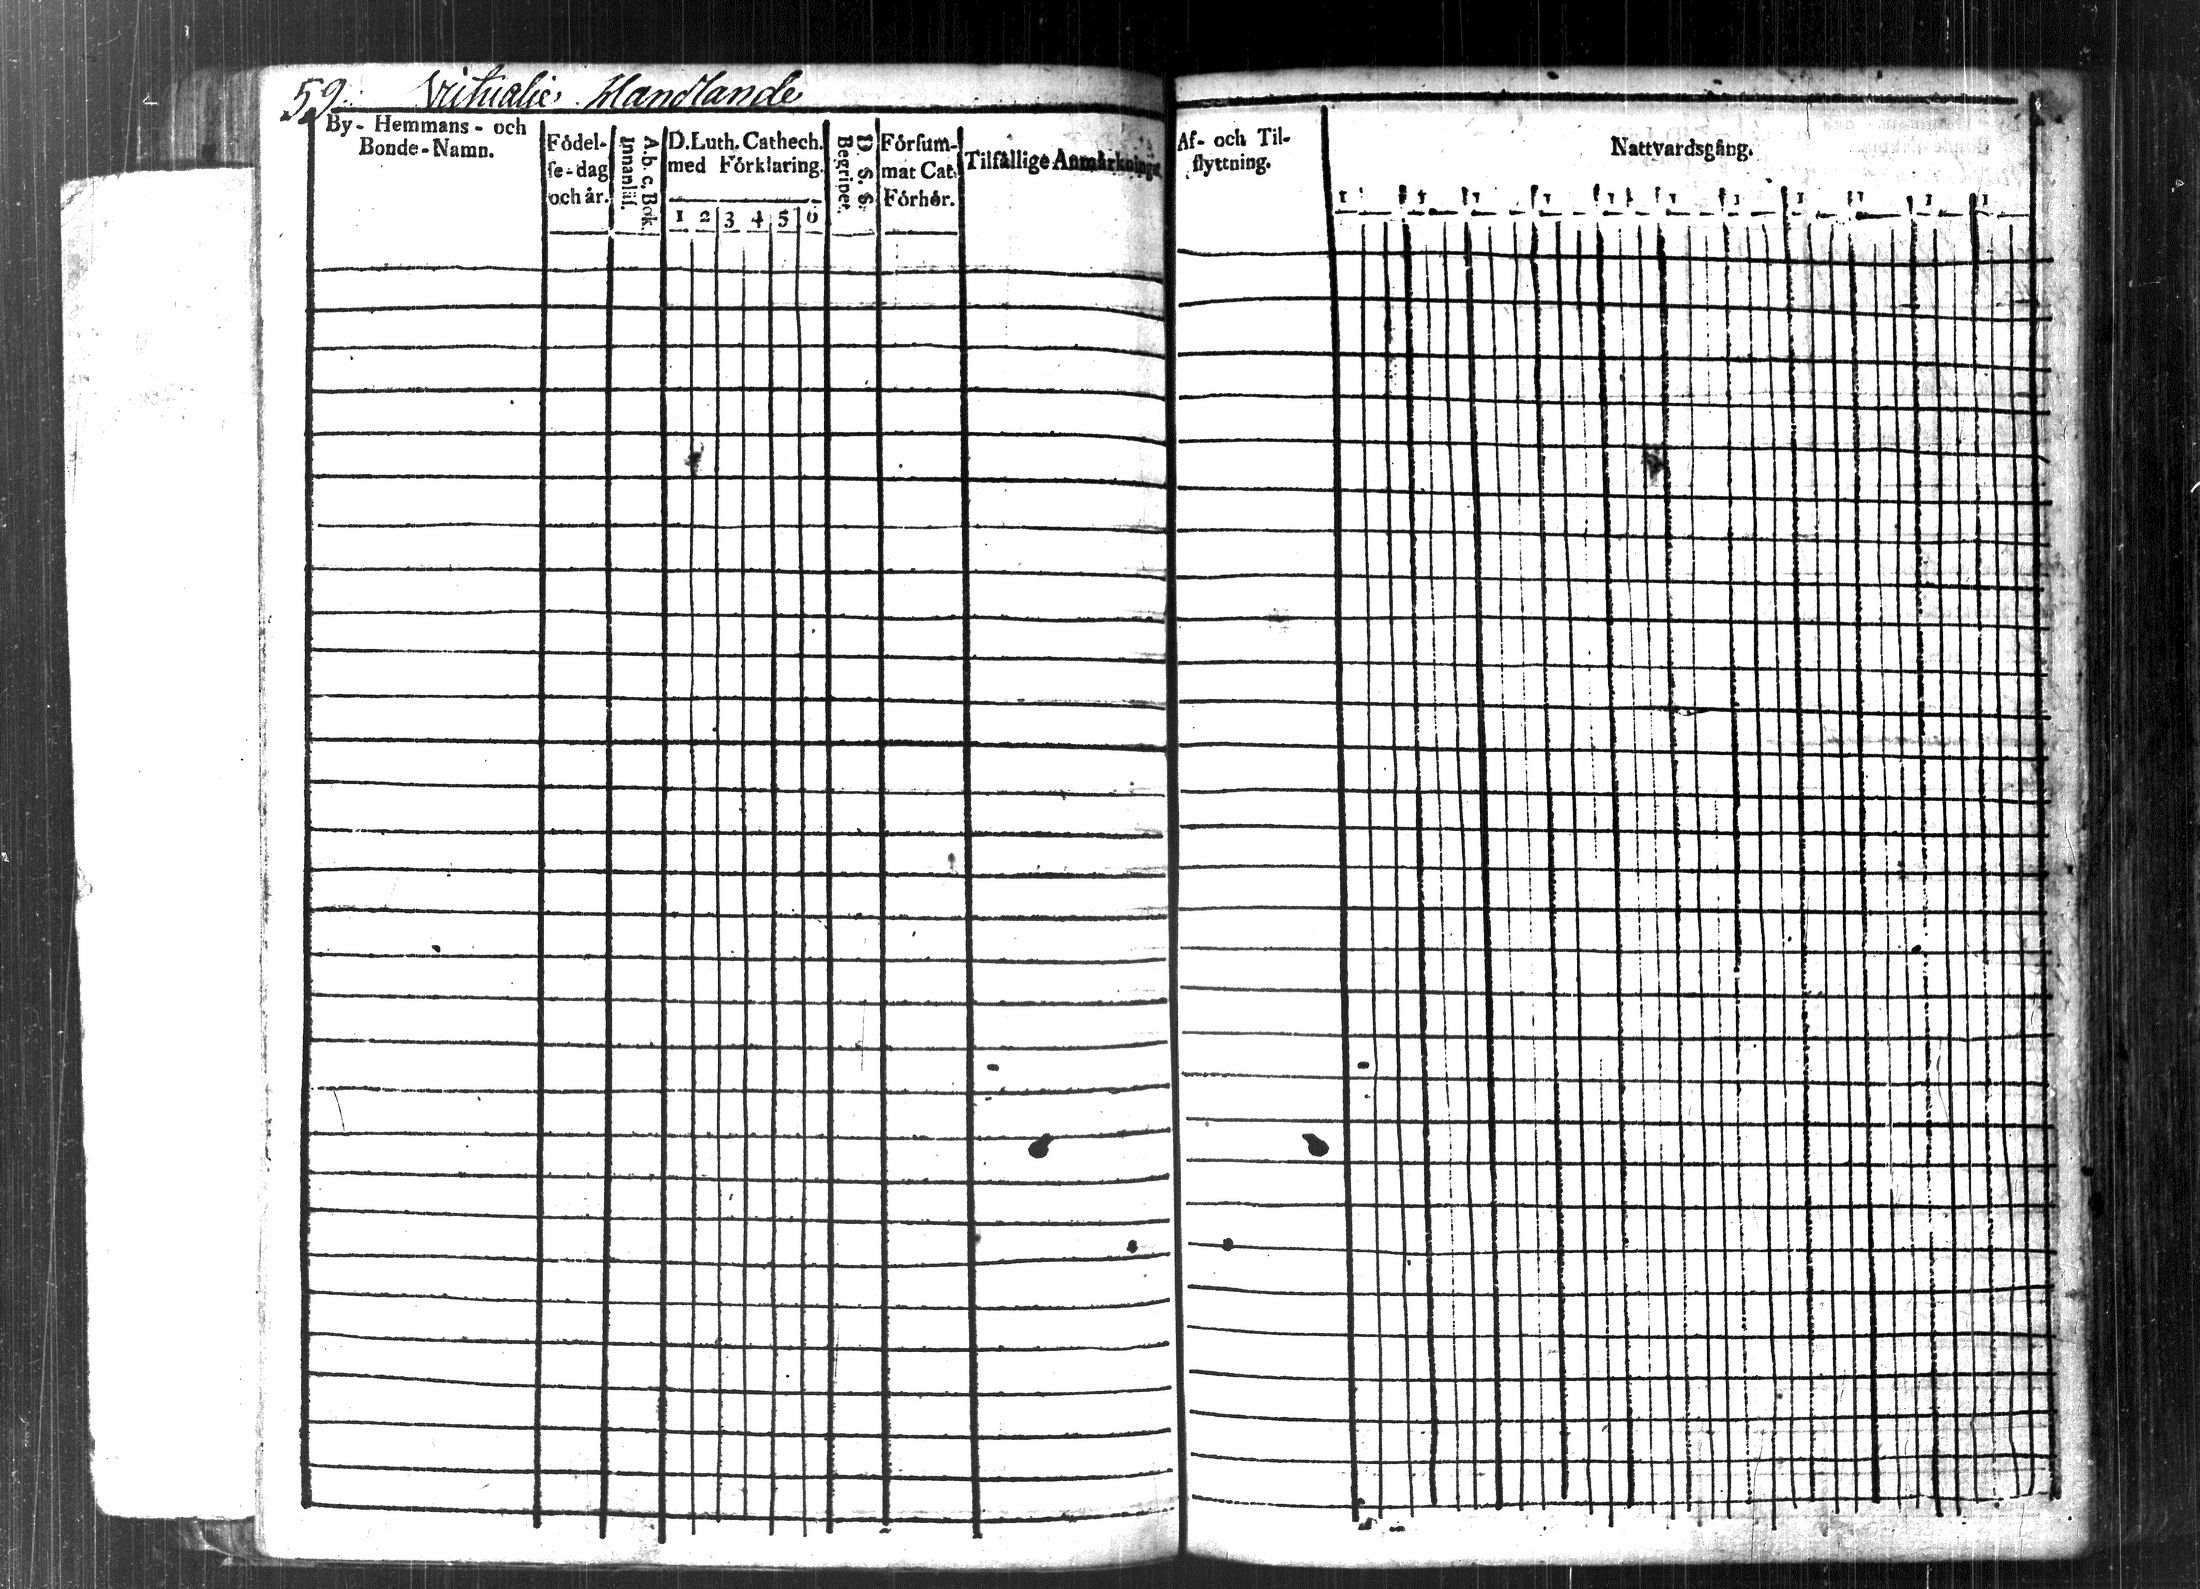 59. Victualie Handlande
By- Hemmans- och
Bonde-Namn.
Födel-
se-dag
och år.
A.b.c. Bok.
Innanläs.
D. Luth. Cathech.
med Förklaring.
1 2 3 4 5 6
D. S. S.
Begriper.
Försum-
mat Cat.
Förhör.
Tilfällige Anmärkningar
Af- och Til-
flyttning.
Nattvardsgång.